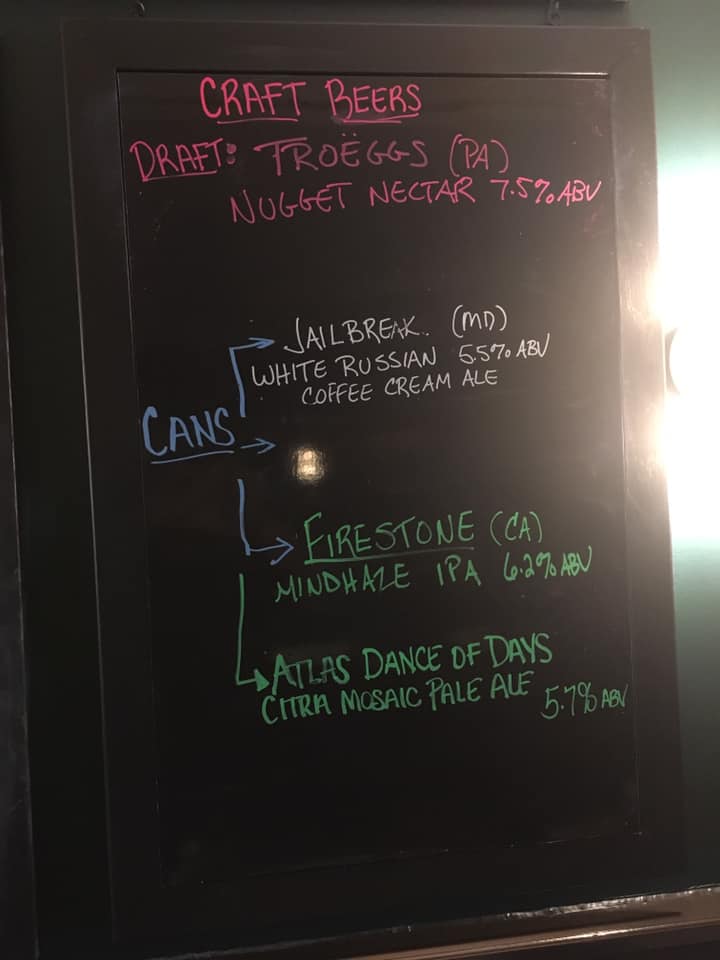 CRAFT BEERS
DRAFT: TROËGGS (PA)
NUGGET NECTAR 7.5% ABV
JAILBREAK (MD)
WHITE RUSSIAN 5.5% ABV
COFFEE CREAM ALE
CANS
FIRESTONE (CA)
MINDHAZE IPA 6.2% ABV
ATLAS DANCE OF DAYS
CITRA MOSAIC PALE ALE 5.7% ABV